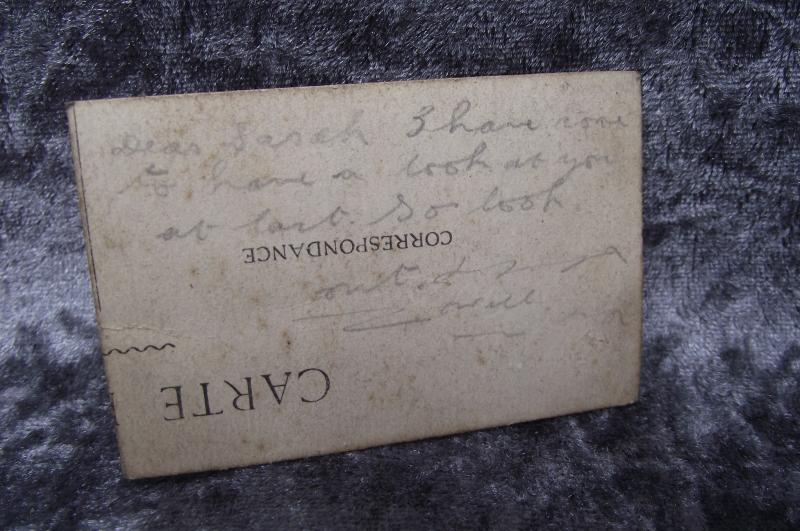 Dear Sarah I have come
to have a look at you
at last. So look
CORRESPONDANCE
out
CARTE